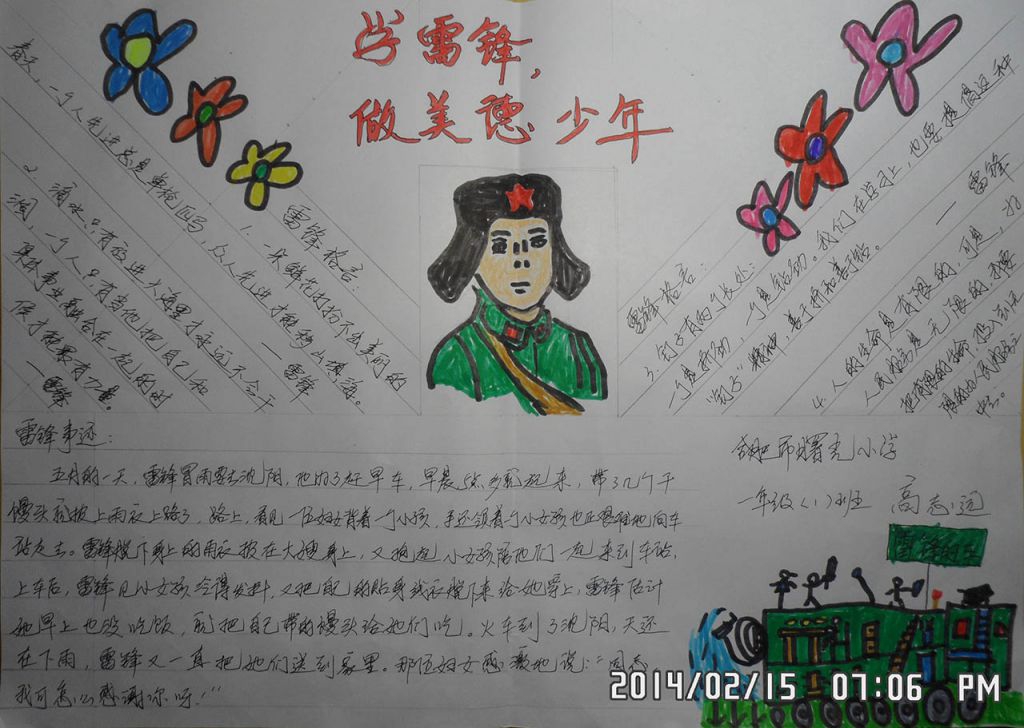 学雷锋，
做美德少年
春天，一个人先进总是单枪匹马，众人先进才能移山填海。
雷锋格言：
1. 一朵鲜花打扮不出美丽的
——雷锋
2. 滴水只有放进大海里才永远不会干
涸，一个人只有当他把自己和
集体事业融合在一起的时
候才能最有力量。
——雷锋
雷锋格言：
3. 钉子有两个长处：
一个是挤劲，一个是钻劲。我们在学习上，也要提倡这种
"钉子"精神，善于挤和善于钻。
——雷锋
4. 人的生命是有限的，可是，为
人民服务是无限的，我要
把有限的生命，投入到无
限的为人民服务之
中去。
雷锋事迹：
五月的一天，雷锋冒雨要去沈阳，他为了赶早车，早晨5点多就起来，带了几个干
馒头就披上雨衣上路了，路上，看见一位妇女背着一个小孩，手还领着一个小女孩也正艰难地向车
站走去。雷锋脱下身上的雨衣披在大嫂身上，又抱起小女孩陪他们一起来到车站，
上车后，雷锋见小女孩冷得发抖，又把自己的贴身线衣脱下来给她穿上，雷锋估计
她早上也没吃饭，就把自己带的馒头给她们吃。火车到了沈阳，天还
在下雨，雷锋又一直把她们送到家里。那位妇女感激地说："同志
我可怎么感谢你呀！"
合肥市曙光小学
一年级（1）班 高志远
雷锋的车
2014/02/15 07:06 PM